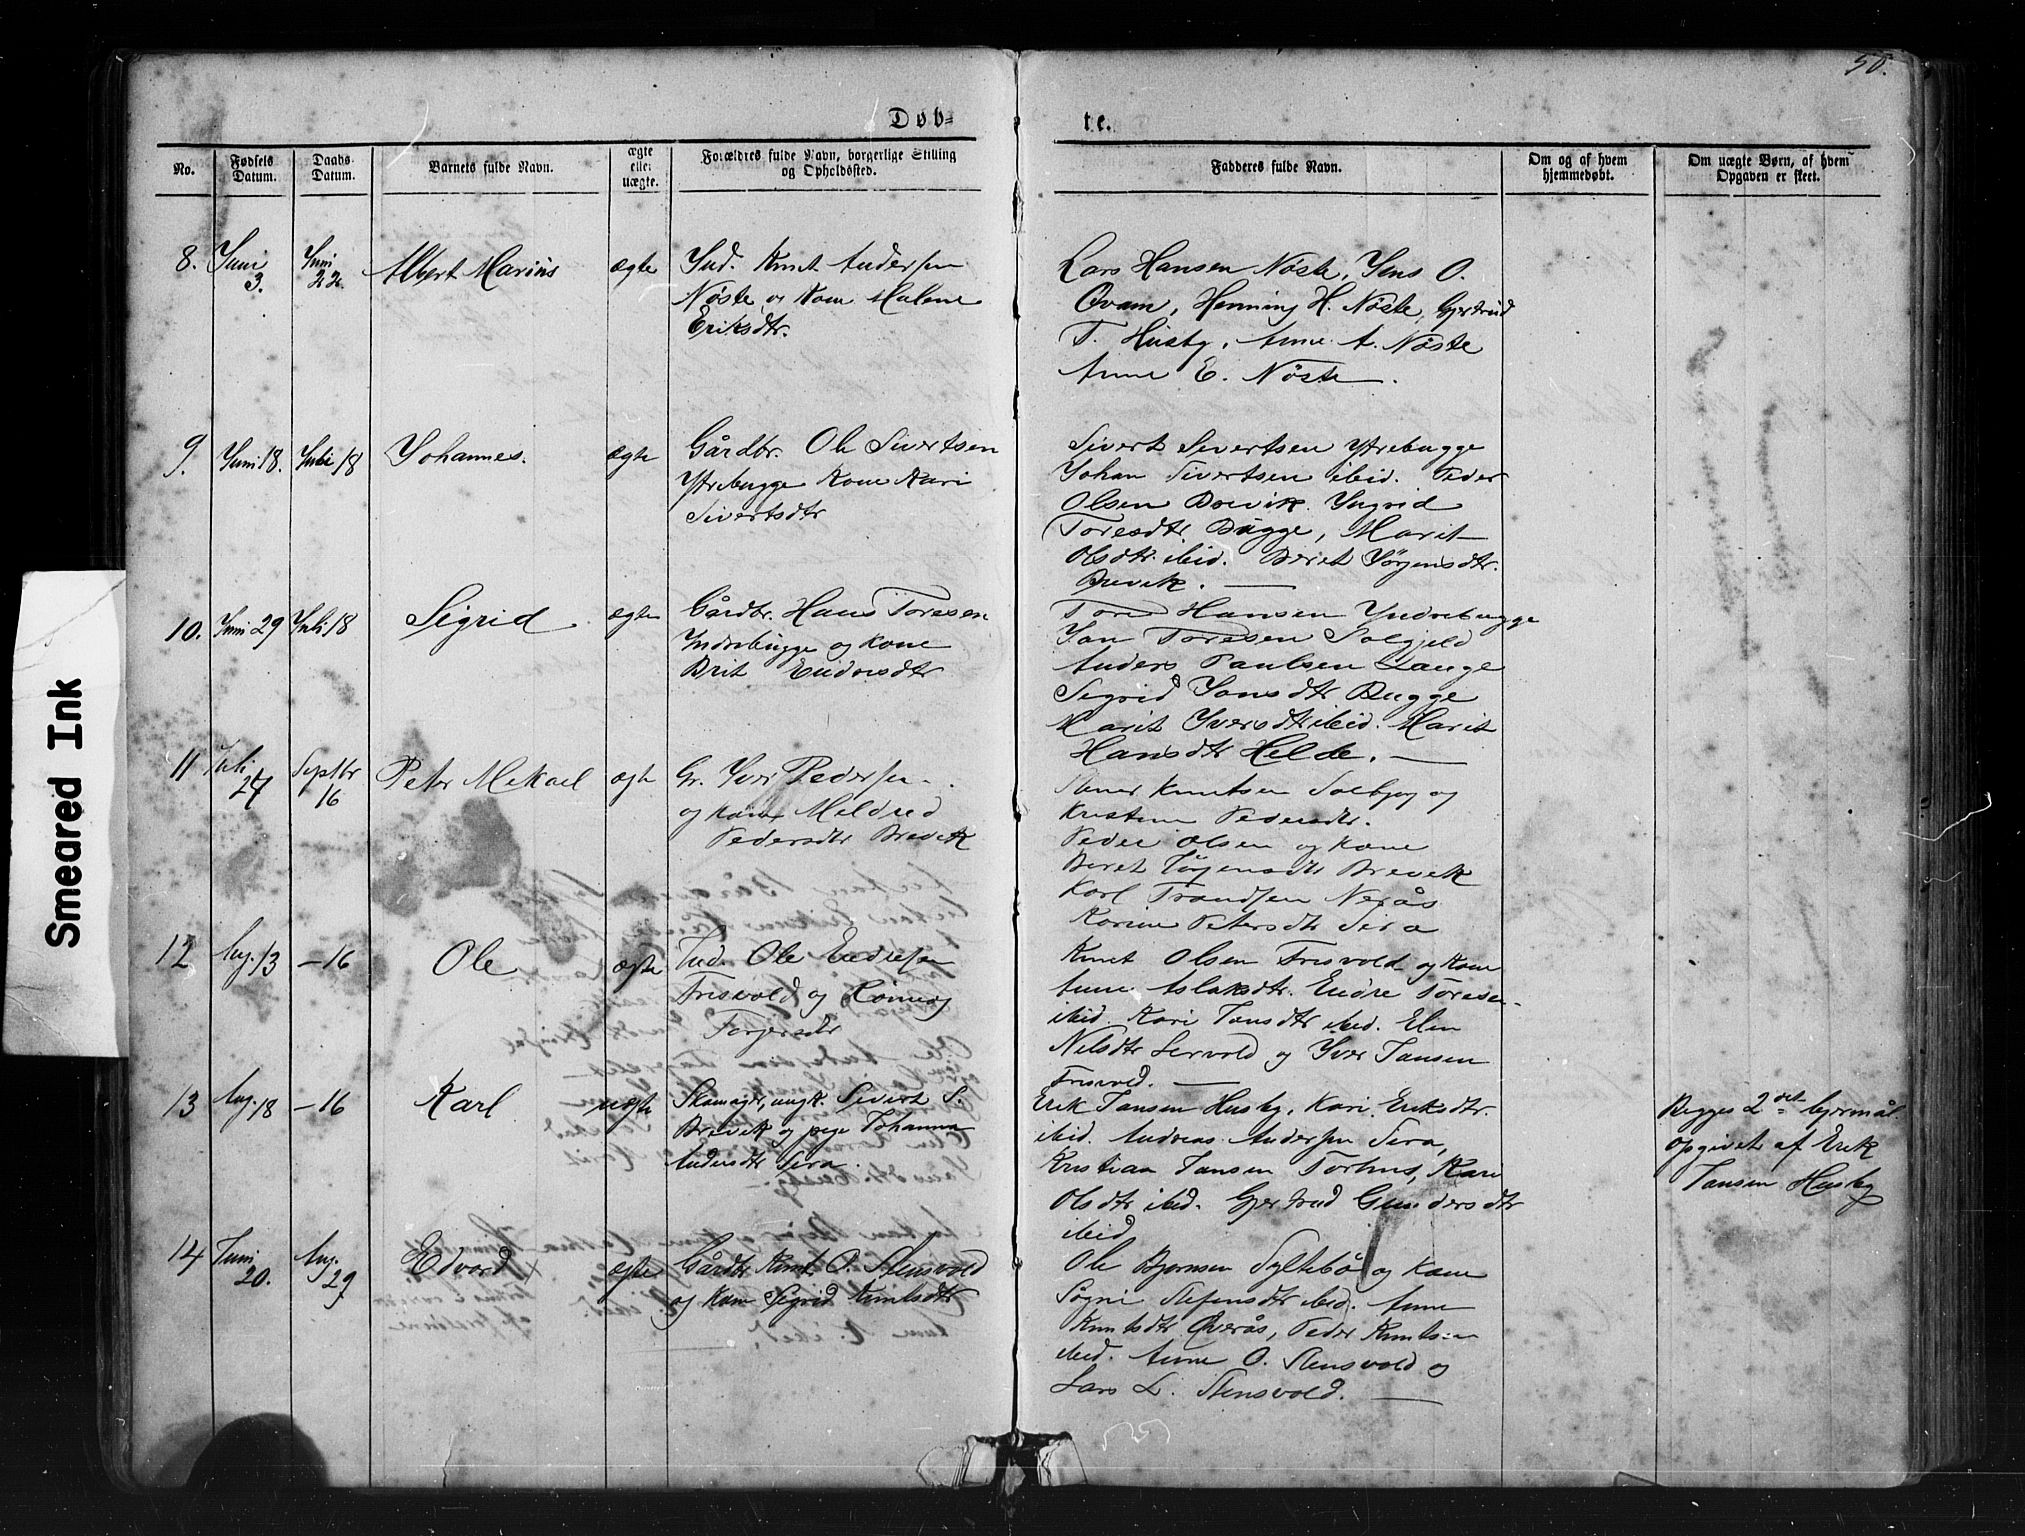 50.
Døb= te.
No.
Fødsels Datum.
Daabs Datum.
Barnets fulde Navn.
ægte eller uægte.
Forældres fulde Navn, borgerlige Stilling og Opholdssted.
Fadderes fulde Navn.
Om og af hvem hjemmedøbt.
Om uægte Børn, af hvem Opgaven er skeet.
8. Juni 3. Juni 22 Albert Marius ægte
Ind. Knut Andersen
Nøste og Kone Malene
Eriksdtr.
Lars Hansen Nøste, Jens O.
Qvam, Henning H. Nøste, Gjertrud
T. Husby, Anne A. Nøste
Anne E. Nøste.
9. Juni 18. Juli 18 Johannes. ægte
Gårdbr. Ole Sivertsen
Ytrebugge Kone Kari
Sivertsdtr
Sivert Sivertsen Ytrebugge
Johan Sivertsen ibid. Peder
Olsen Brevik. Ingrid
Toresdtr Bugge, Marit
Olsdtr ibid. Beret Jørgensdtr.
Brevik.
10. Juni 29 Juli 18 Sigrid ægte
Gårdbr. Hans Toresen
Indrebugge og Kone
Brit Endresdtr
Tore Hansen Indrebugge
Jan Toresen Solgjeld
Anders Paulsen Lange
Sigrid Jonsdtr Bugge
Marit Iversdtr ibid. Marit
Hansdtr Helde.
11 Juli 27 Septbr 16 Peter Mikael ægte
Gr. Iver Pedersen
og Kone Mildred
Pedersdtr Brevik
Knutsen Solbjøg og
Kristine Pedersdtr.
Peder Olsen og Kone
Beret Jøgensdtr Brevik
Karl Trondsen Nerås
Karine Petersdtr Sira
12 Aug. 13 – 16 Ole ægte
Ind. Ole Endresen
Frisvold og
Torgersdtr
Knut Olsen Frisvold og Kone
Anne Aslaksdtr. Endre Toresen
ibid. Kari Jonsdtr ibid. Elen
Nilsdtr Lervold og Iver Jansen
Frisvold.
13 Aug. 18 – 16 Karl uægte
Skomagr, ungk. Sivert S.
Brevik og pige Johanna
Andersdtr Sira.
Erik Jansen Husby, Kari Eriksdtr
ibid. Andreas Andersen Sira,
Kristian Jansen Torhus, Kari
Olsdtr ibid. Gjertrud Gundersdtr
ibid
Begges 2det lejermål
opgivet af Erik
Jansen Husby
14 Juni 20. Aug. 29 Edvard × ægte
Gårdbr Knut O. Stensvold
og Kone Sigrid Knutsdtr
Ole Bjørnsen Syltebø og Kone
Søgni Stefensdtr ibid. Anne
Knutsdtr Øverås, Peder Knutsen
ibid. Anne O. Stensvold og
Lars L. Stensvold.
Smeared Ink